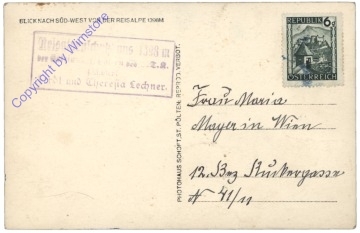 BLICK NACH SÜD-WEST VON DER REISALPE
und Theresia Lechner.
Copyright by Wimstone
PHOTOHAUS SCHOFT, ST. PÖLTEN. REPROD. VERBOT.
6g
REPUBLIK
ÖSTERREICH
Frau Maria
Mayer in Wien
12. Bez Ruckergasse
N 41/11